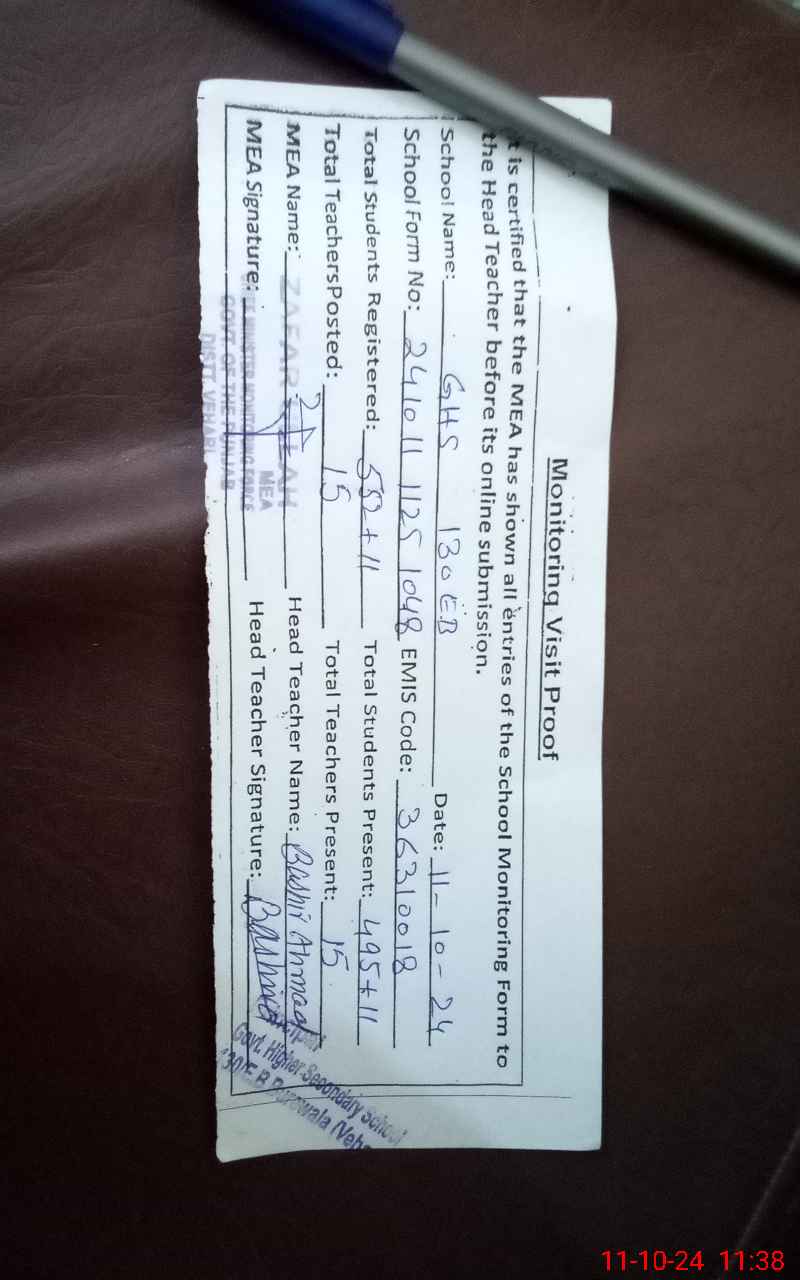 Monitoring Visit Proof
It is certified that the MEA has shown all entries of the School Monitoring Form to
the Head Teacher before its online submission.
School Name: GHS 130 EB Date: 11-10-24
School Form No: 241011 1125 1048 EMIS Code: 36310018
Total Students Registered: 552+11 Total Students Present: 495+11
Total TeachersPosted: 15 Total Teachers Present: 15
MEA Name: ZAFAR Head Teacher Name: Bashir Ahmad
MEA Signature: Head Teacher Signature: Bashir
MEA
CHIEF MINISTER MONITORING FORCE
GOVT. OF THE PUNJAB
DISTT. VEHARI
Principal
Govt. Higher Secondary School
130/E.B Burewala (Veha
11-10-24 11:38